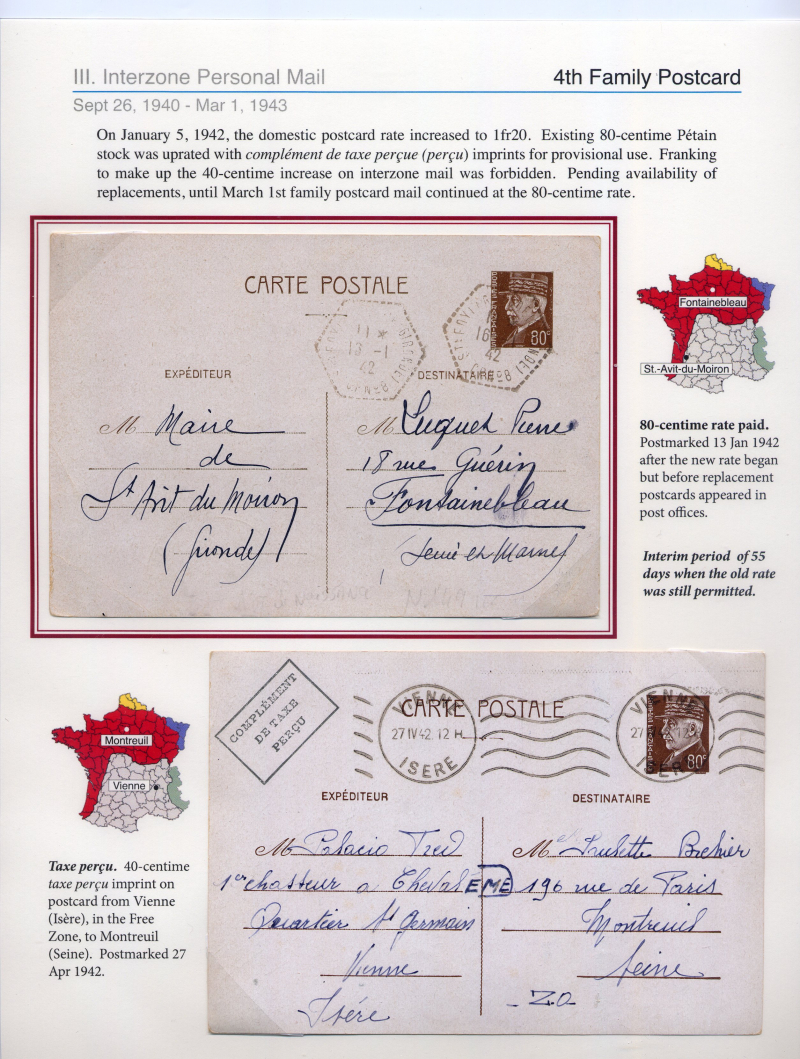 III. Interzone Personal Mail
4th Family Postcard
Sept 26, 1940 - Mar 1, 1943
On January 5, 1942, the domestic postcard rate increased to 1fr20. Existing 80-centime Pétain
stock was uprated with complément de taxe perçue (perçu) imprints for provisional use. Franking
to make up the 40-centime increase on interzone mail was forbidden. Pending availability of
replacements, until March 1st family postcard mail continued at the 80-centime rate.
CARTE POSTALE
80c
11 *
13 -1
42
16
42
EXPÉDITEUR
DESTINATAIRE
M Maire
de
St Avit du Moiron
(Gironde)
M Luquet Pierre
18 rue Guérin
Fontainebleau
Seine et Marne
Fontainebleau
St.-Avit-du-Moiron
80-centime rate paid.
Postmarked 13 Jan 1942
after the new rate began
but before replacement
postcards appeared in
post offices.
Interim period of 55
days when the old rate
was still permitted.
Montreuil
Vienne
Taxe perçu. 40-centime
taxe perçu imprint on
postcard from Vienne
(Isère), in the Free
Zone, to Montreuil
(Seine). Postmarked 27
Apr 1942.
COMPLÉMENT
DE TAXE
PERÇU
CARTE POSTALE
VIENNE
27 IV 42. 12 H
ISERE
VIENNE
27
ISERE
80c
EXPÉDITEUR
DESTINATAIRE
M Palacio Fred
1er chasseur a Cheval
Quartier St germain
Vienne
Isére
EME
Melle
190 rue de Paris
Montreuil
Seine